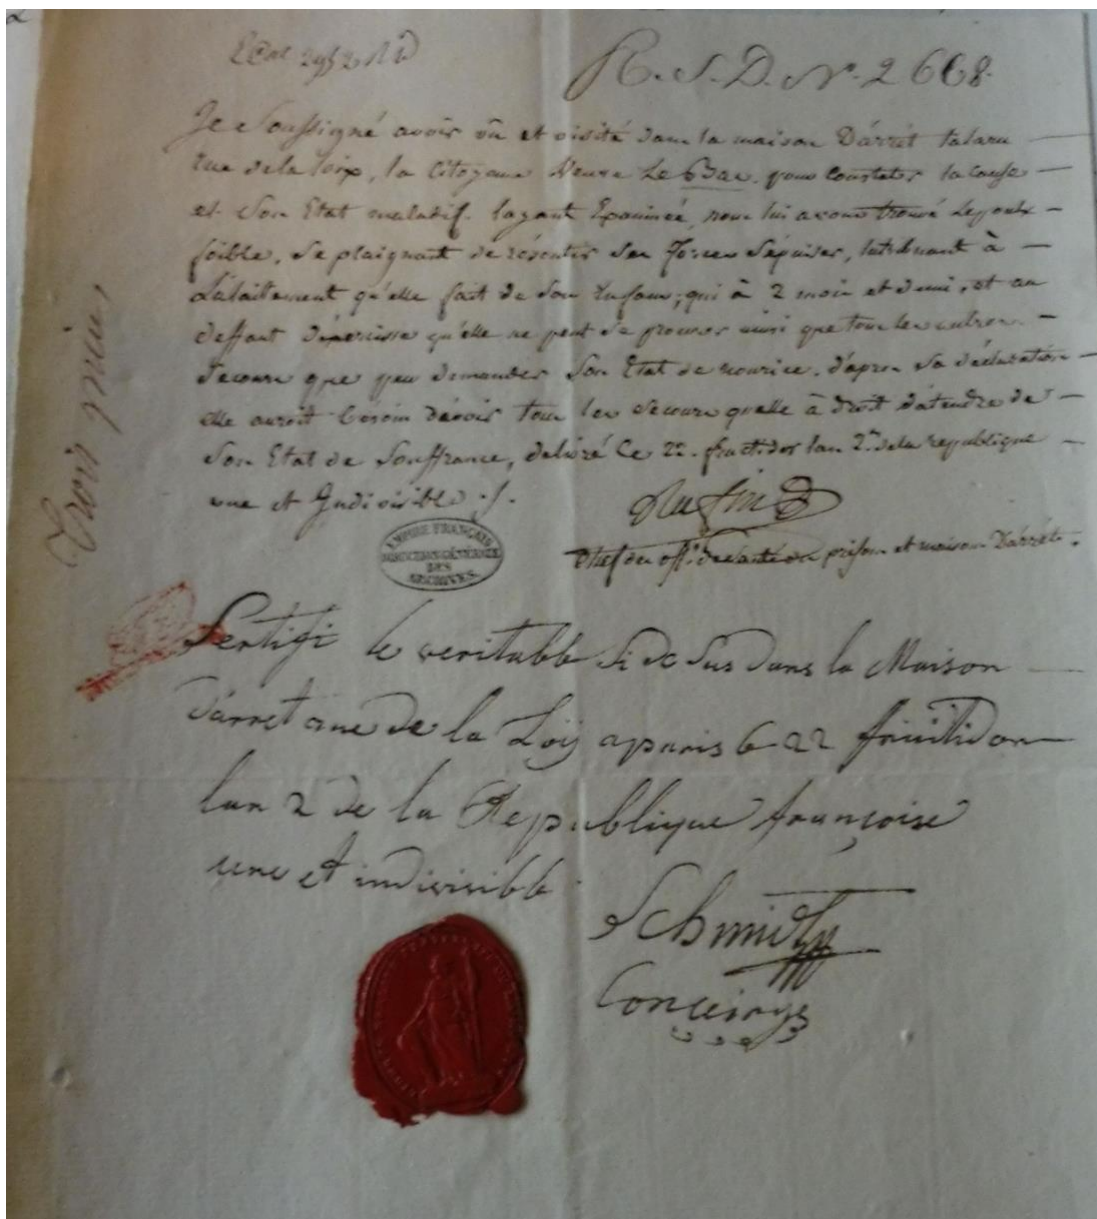 R. S. D. N°. 2668.
Je Soussigné avoir vû et visité dans la maison D'árrêt talaru
rue de la loix, la Citoyene Veuve Le Bas. pour Constater la cause
et Son Etat maladif. layant Examinée, nous lui avons trouvé le poulx
foible, Se plaignant de Ses forces S'épuiser, latribuant à
Lalaitement qu'elle fait de Son Enfant; qui à 2 mois et demi, et au
deffaut qu'elle ne peut Se procurer ainsi que tous les autres
Secours que peu demander Son Etat de nourice. d'apres Sa déclaration
elle auroit besoin d'avoir tous les Secours quelle à droit d'atendre de
Son Etat de Souffrance, delivré Ce 22. fructidor lan 2.me de la republique
une et Indivisible ./.
EMPIRE FRANÇAIS
DIRECTION GÉNÉRALE
DES
ARCHIVES.
Chef des off. de santé des prisons et maisons D'árrêt.
Trois
Sertifi le veritable Si de Sus dans la Maison
d'arret rue de la Loij a paris le 22 fruitidor
lan 2 de la Republique françoise
une et indivisible
Schmidt
Concierge